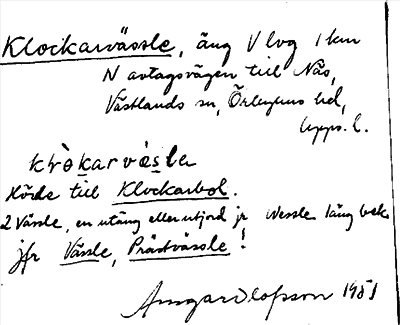 Klockarvässle, äng V lvg 1 km
N avtagsvägen till Näs,
Västlands sn, Örbyhus hd,
Upps. l.
klòkarvæsla
Hörde till Klockarbol.
2 Vässle, en utäng eller utjord jr Wessle läng bek
jfr Vässle, Prästvässle!
Olofsson 1951